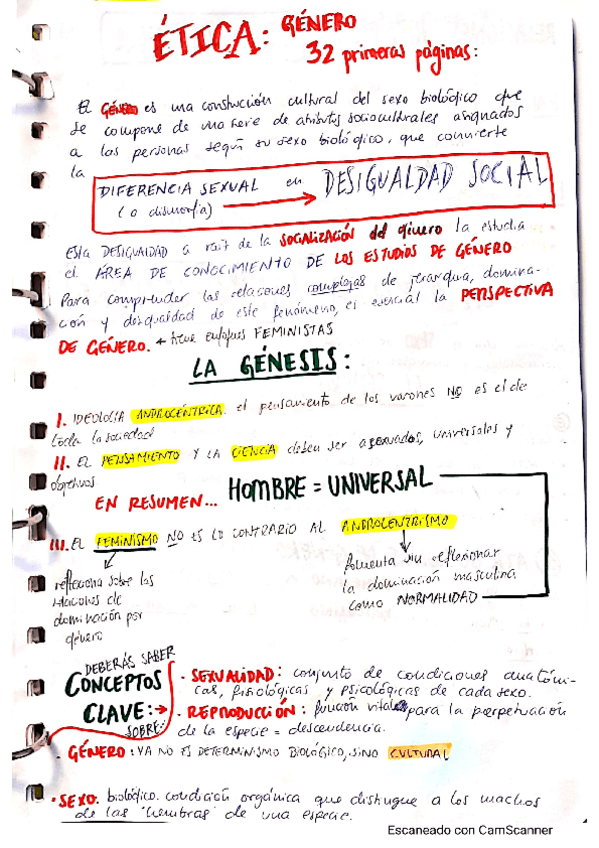 ÉTICA: GÉNERO
32 primeras páginas:
El GÉNERO es una construcción cultural del sexo biológico que
se compone de una serie de atributos socioculturales asignados
a las personas según su sexo biológico, que convierte
la
DIFERENCIA SEXUAL en DESIGUALDAD SOCIAL
(o dismorfia)
Esta DESIGUALDAD a raíz de la SOCIALIZACIÓN del género la estudia
el ÁREA DE CONOCIMIENTO DE LOS ESTUDIOS DE GÉNERO
Para comprender las relaciones complejas de jerarquía, domina-
ción y desigualdad de este fenómeno, es esencial la PERSPECTIVA
DE GÉNERO. + tiene enfoques FEMINISTAS
LA GÉNESIS:
I. IDEOLOGÍA ANDROCÉNTRICA. el pensamiento de los varones NO es el de
toda la sociedad
II. EL PENSAMIENTO Y LA CIENCIA deben ser universales y
objetivos
EN RESUMEN... HOMBRE = UNIVERSAL
III. EL FEMINISMO NO ES LO CONTRARIO AL ANDROCENTRISMO
reflexiona sobre las
relaciones de
dominación por
género
fomenta sin reflexionar
la dominación masculina
como NORMALIDAD
DEBERÁS SABER
CONCEPTOS
CLAVE:
SOBRE:
· SEXUALIDAD: conjunto de condiciones anatómi-
cas, fisiológicas y psicológicas de cada sexo.
· REPRODUCCIÓN: función vital para la perpetuación
de la especie = descendencia.
· GÉNERO: YA NO ES DETERMINISMO BIOLÓGICO, SINO CULTURAL
· SEXO. biológico. condición orgánica que distingue a los machos
de las "hembras" de una especie.
Escaneado con CamScanner